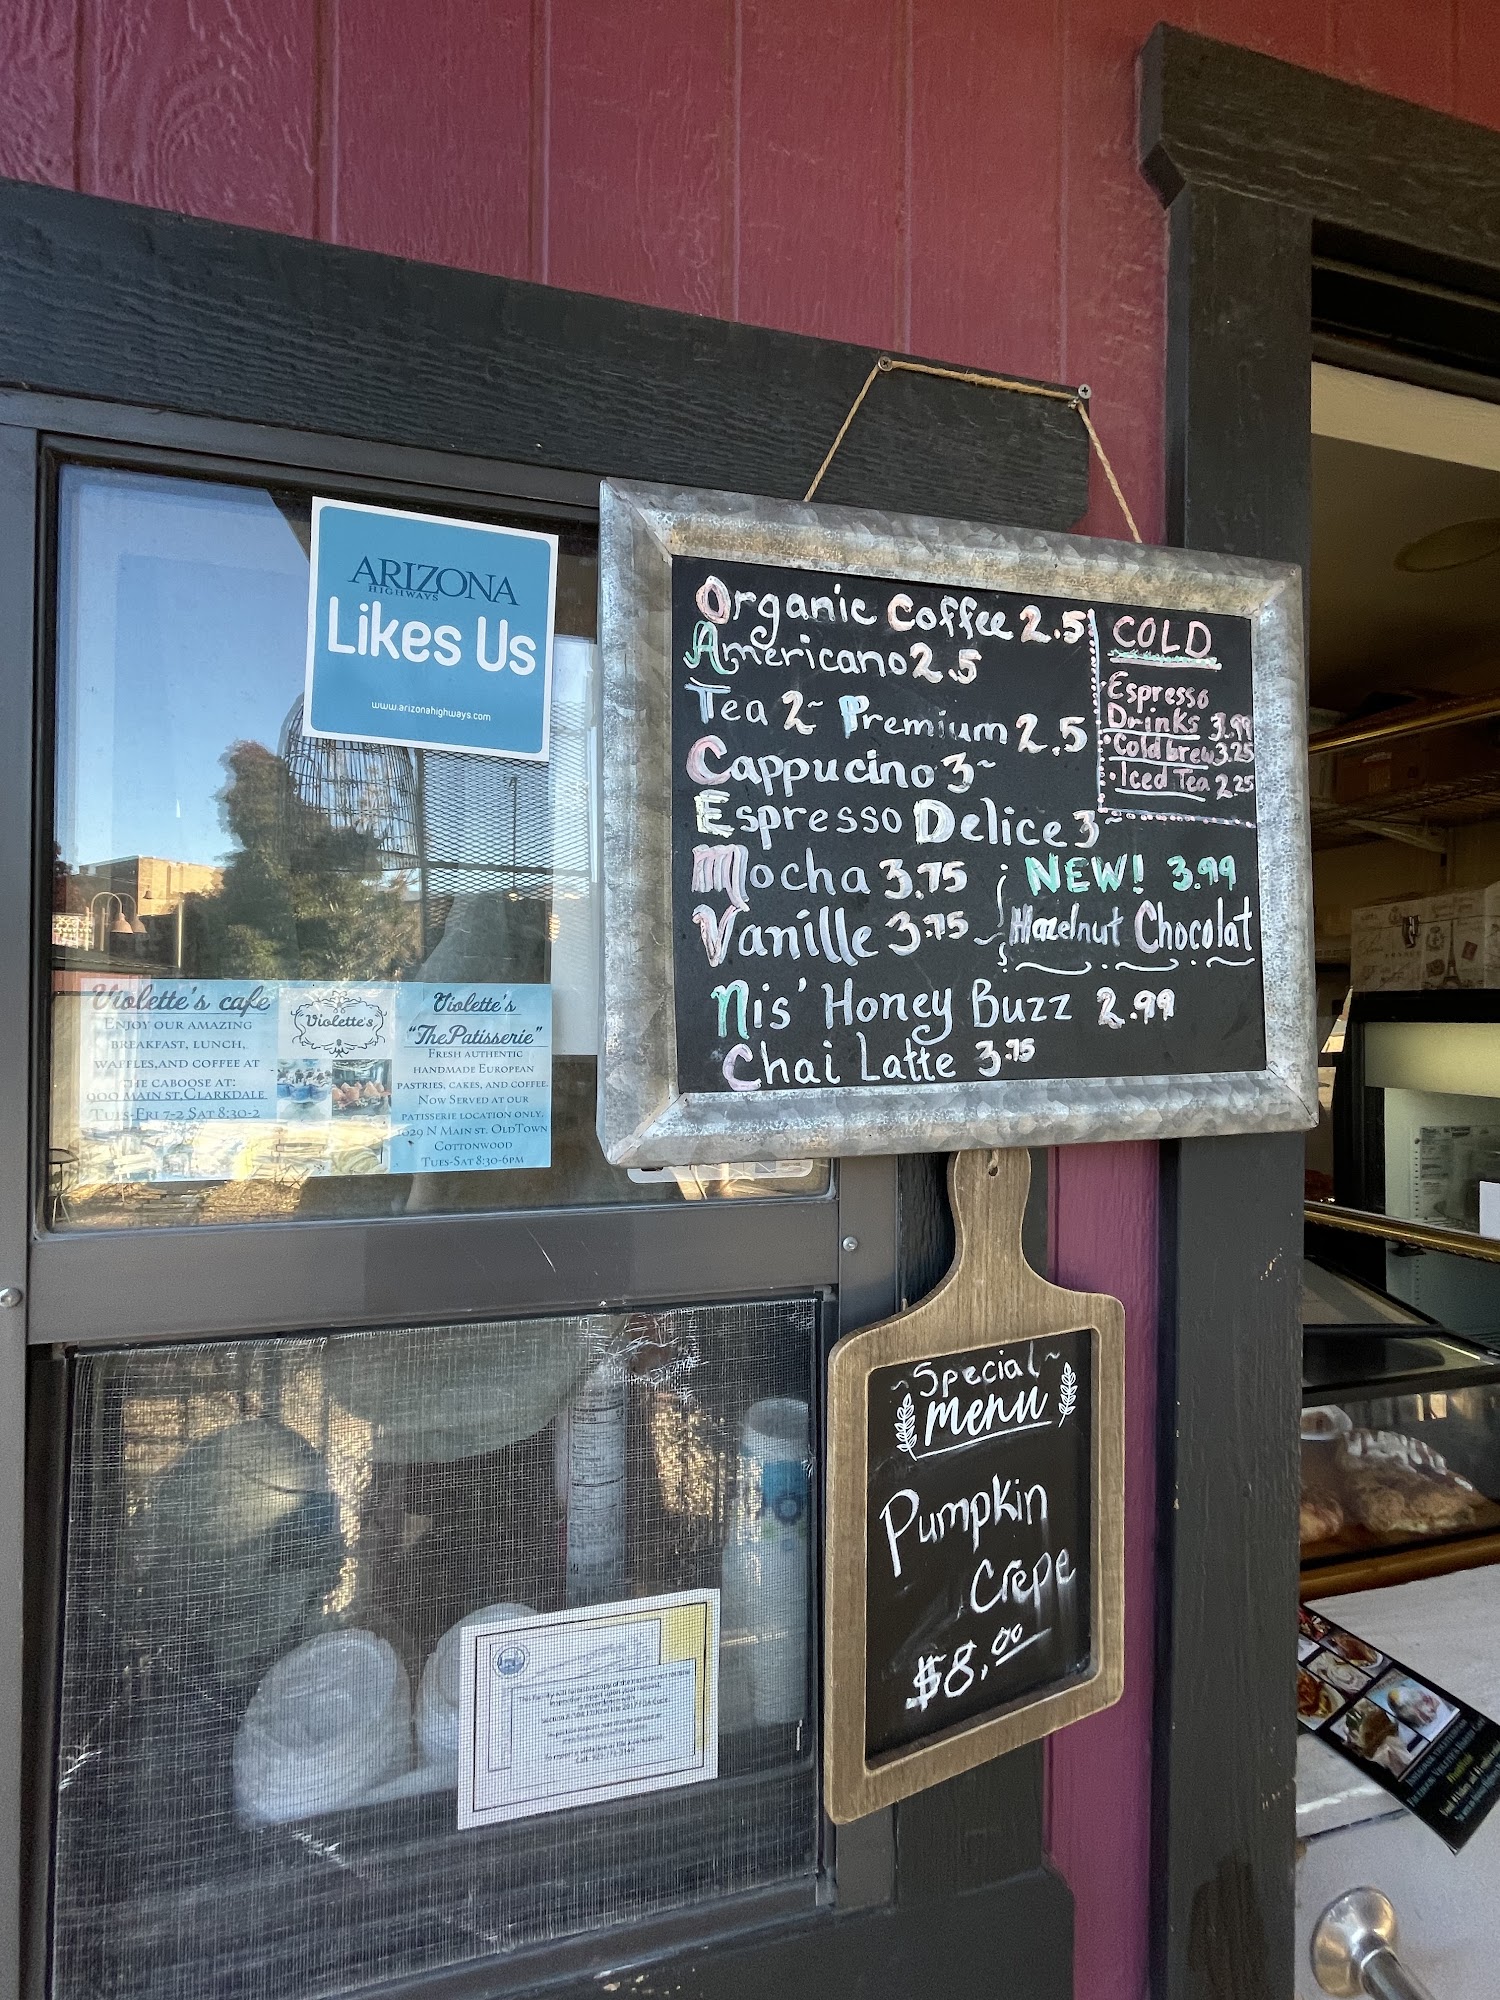 ARIZONA
HIGHWAYS
Likes Us
www.arizonahighways.com
Organic Coffee 2.5
Americano 2.5
Tea 2~ Premium 2.5
Cappucino 3~
Espresso Delice 3~
Mocha 3.75
Vanille 3.75
Nis' Honey Buzz 2.99
Chai Latte 3.75
COLD
Espresso
Drinks 3.99
·Cold brew 3.25
·Iced Tea 2.25
NEW! 3.99
Hazelnut Chocolat
Violette's cafe
ENJOY OUR AMAZING
BREAKFAST, LUNCH,
WAFFLES, AND COFFEE AT
THE CABOOSE AT:
900 MAIN ST, CLARKDALE
TUES-FRI 7-2 SAT 8:30-2
Violette's
Violette's
"The Patisserie"
FRESH AUTHENTIC
HANDMADE EUROPEAN
PASTRIES, CAKES, AND COFFEE.
NOW SERVED AT OUR
PATISSERIE LOCATION ONLY.
1029 N MAIN ST. OLDTOWN
COTTONWOOD
TUES-SAT 8:30-6PM
~Special~
menu
Pumpkin
Crepe
$8.00